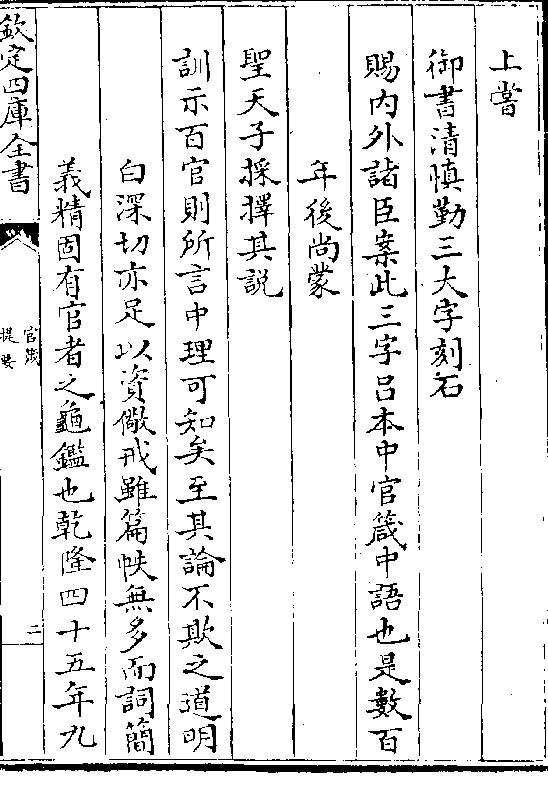 上嘗
御書清慎勤三大字刻石
賜内外諸臣案此三字吕本中官箴中語也是數百
年後尚蒙
聖天子採擇其説
訓示百官則所言中理可知矣至其論不欺之道明
白深切亦足以資儆戒雖篇帙無多而詞簡
義精固有官者之龜鑑也乾隆四十五年九
欽定四庫全書
官箴
提要
二